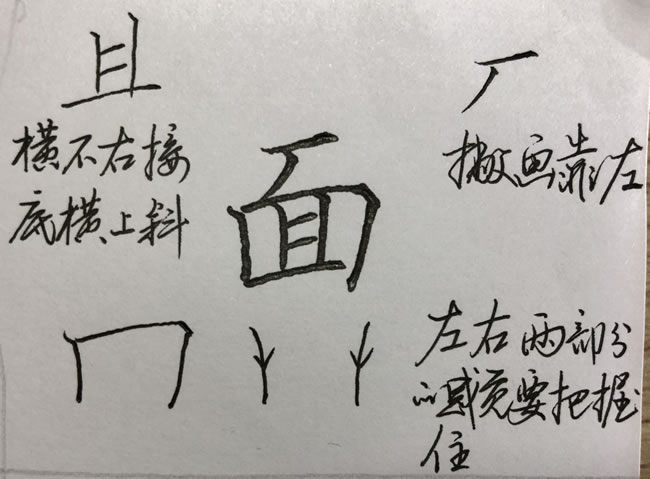 横不右接
底横上斜
面
撇画靠左
左右两部分
的感觉要把握
住